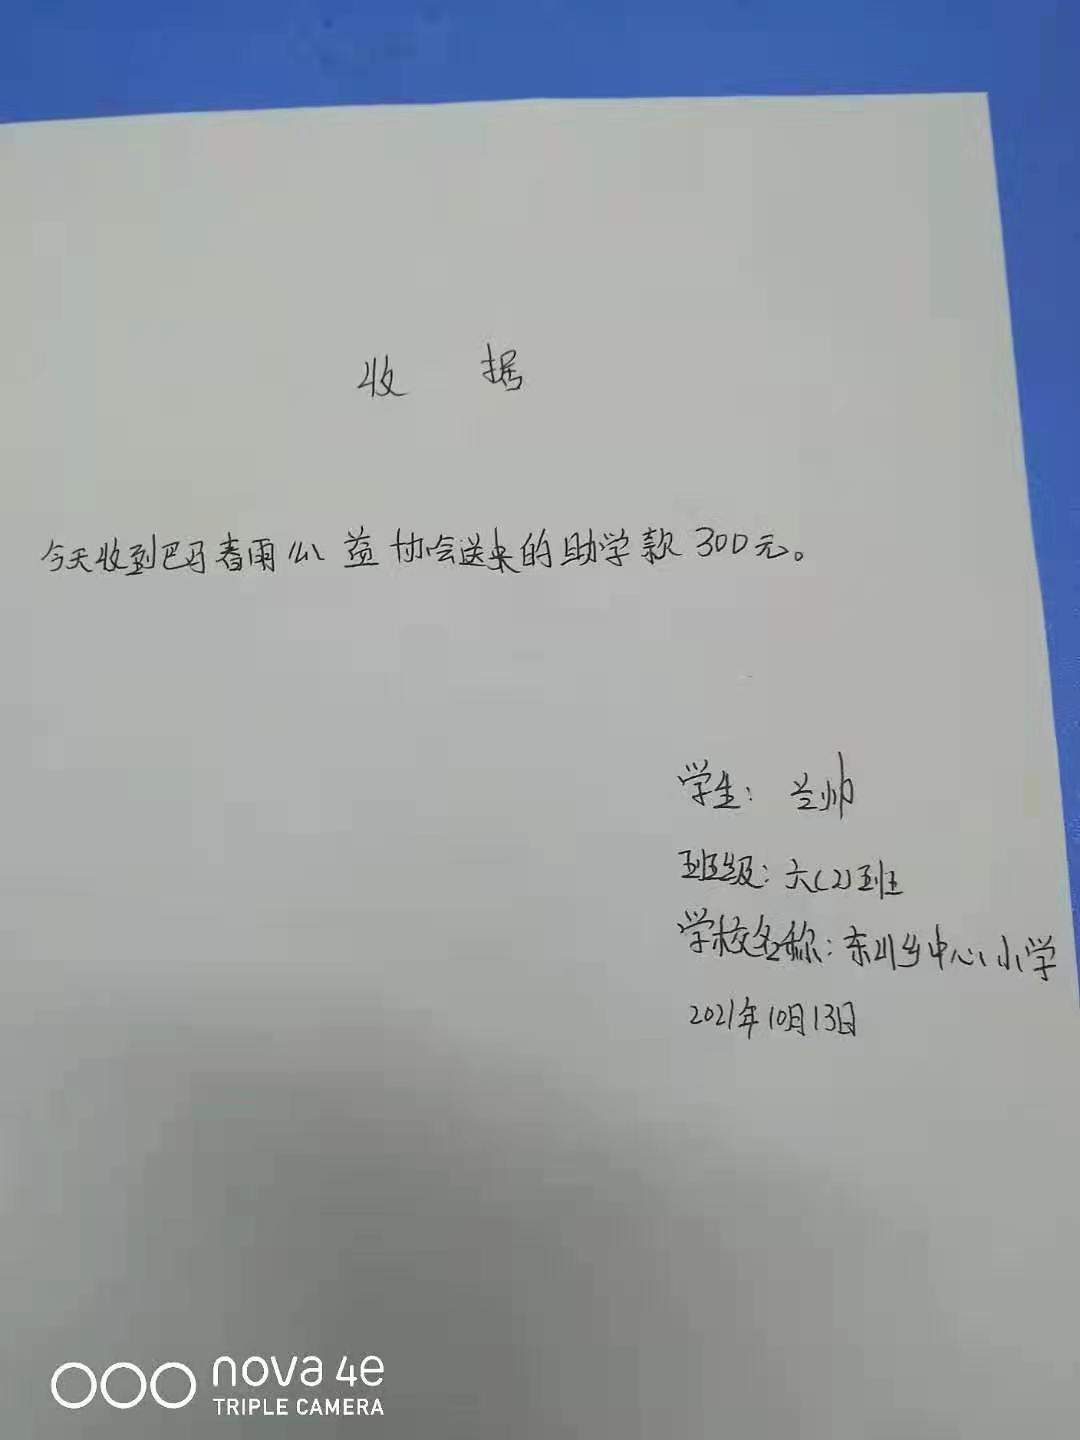 收 据
今天收到巴马春雨公益协会送来的助学款300元。
学生：兰帅
班级：六(2)班
学校名称：东山乡中心小学
2021年10月13日
nova 4e
TRIPLE CAMERA